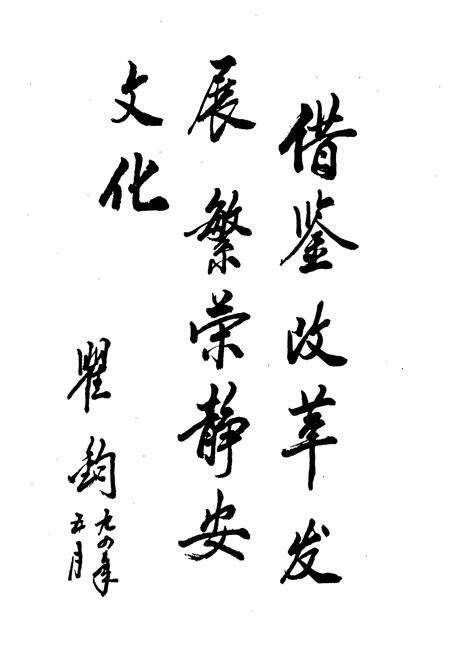 借鉴改革发
展 繁荣静安
文化
瞿钧
九四年
五月